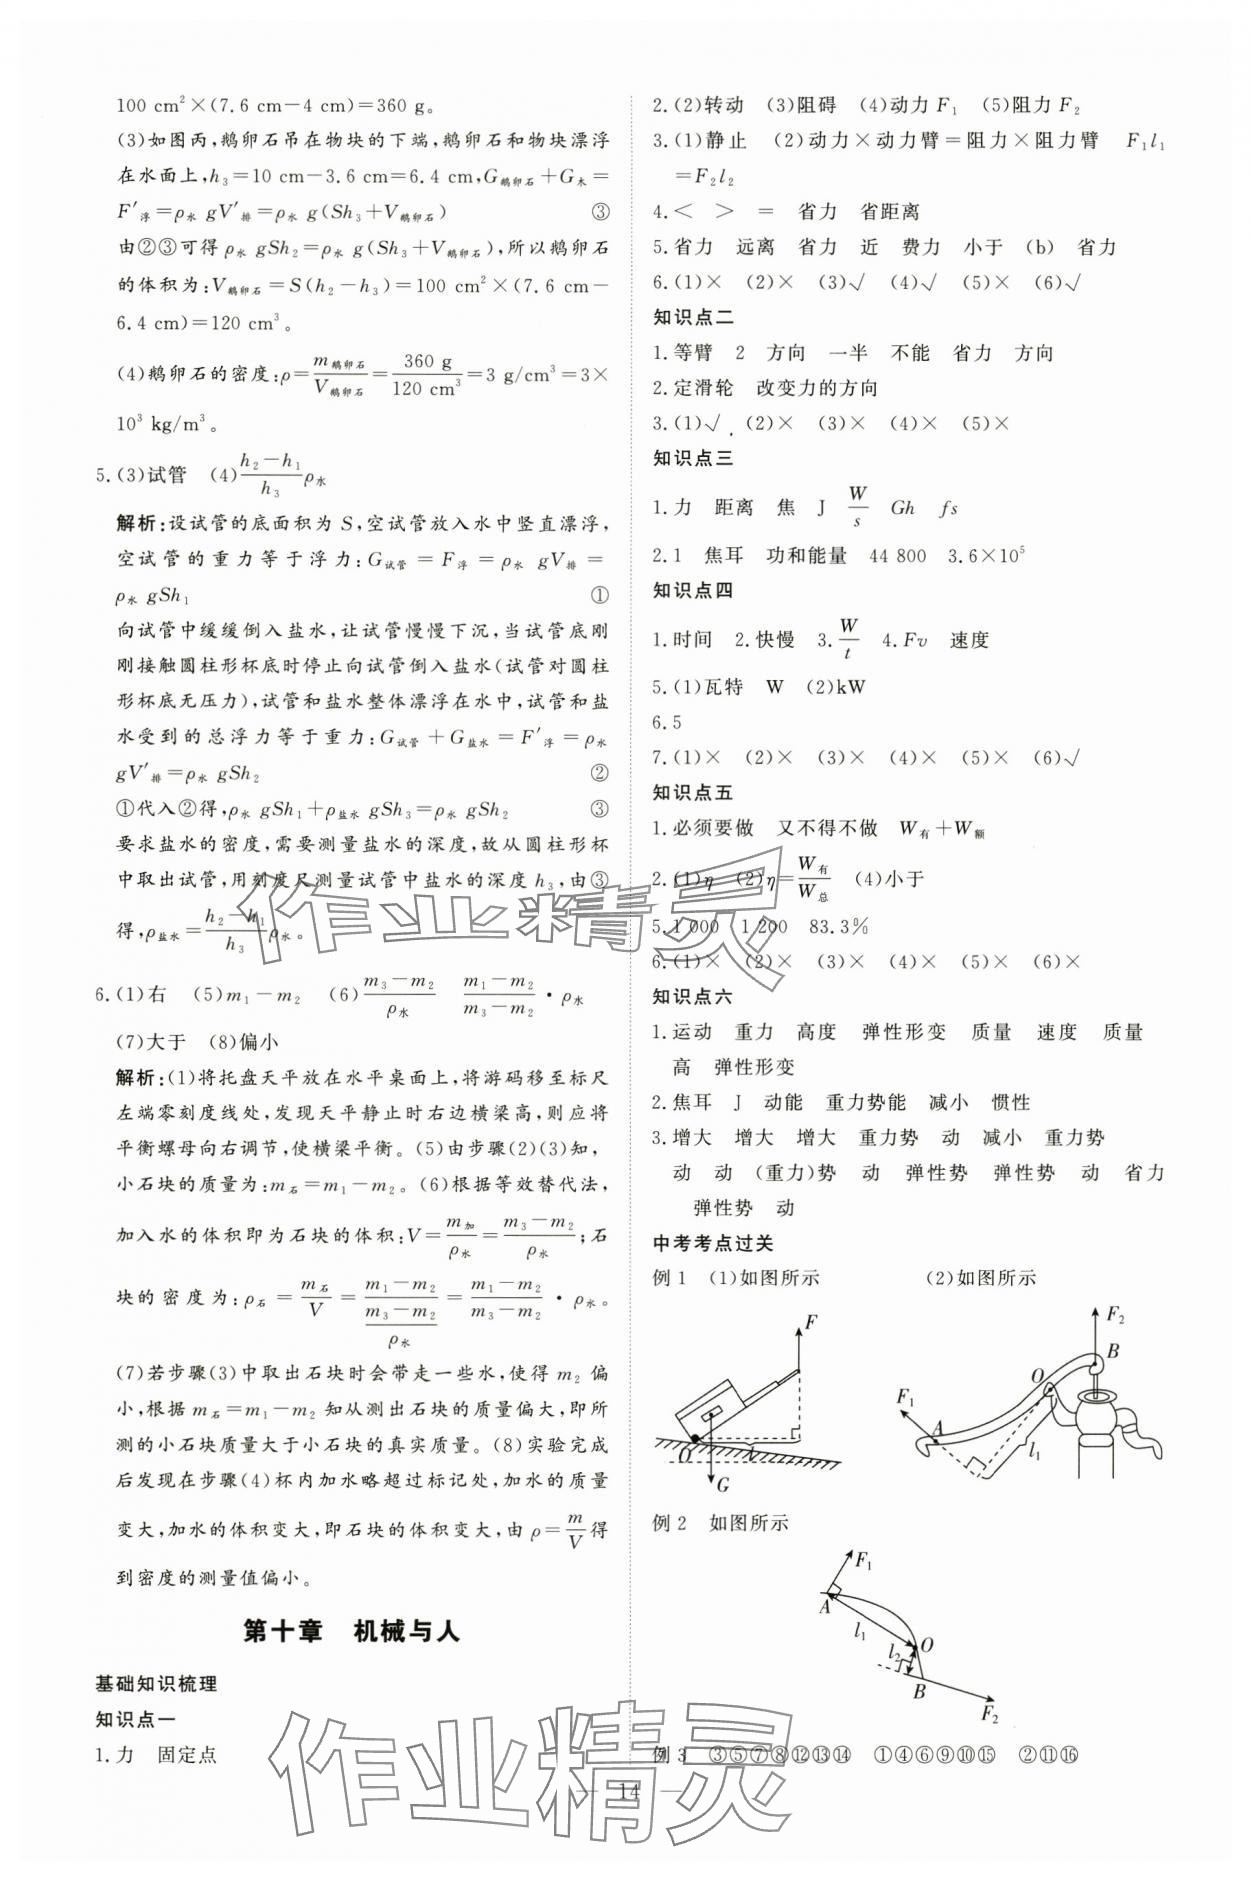 100 cm²×(7.6 cm−4 cm)=360 g。
(3)如图丙,鹅卵石吊在物块的下端,鹅卵石和物块漂浮
在水面上,h₃=10 cm−3.6 cm=6.4 cm,G鹅卵石+G木=
F′浮=ρ水 gV′排=ρ水 g(Sh₃+V鹅卵石) ③
由②③可得ρ水 gSh₂=ρ水 g(Sh₃+V鹅卵石),所以鹅卵石
的体积为:V鹅卵石=S(h₂−h₃)=100 cm²×(7.6 cm−
6.4 cm)=120 cm³。
(4)鹅卵石的密度:ρ=m鹅卵石/V鹅卵石=360 g/120 cm³=3 g/cm³=3×
10³ kg/m³。
5.(3)试管 (4)(h₂−h₁)/h₃ ρ水
解析:设试管的底面积为S,空试管放入水中竖直漂浮,
空试管的重力等于浮力:G试管=F浮=ρ水 gV排=
ρ水 gSh₁ ①
向试管中缓缓倒入盐水,让试管慢慢下沉,当试管底刚
刚接触圆柱形杯底时停止向试管倒入盐水(试管对圆柱
形杯底无压力),试管和盐水整体漂浮在水中,试管和盐
水受到的总浮力等于重力:G试管+G盐水=F′浮=ρ水
gV′排=ρ水 gSh₂ ②
①代入②得,ρ水 gSh₁+ρ盐水 gSh₃=ρ水 gSh₂ ③
要求盐水的密度,需要测量盐水的深度,故从圆柱形杯
中取出试管,用刻度尺测量试管中盐水的深度h₃,由③
得,ρ盐水=(h₂−h₁)/h₃ ρ水。
6.(1)右 (5)m₁−m₂ (6)(m₃−m₂)/ρ水 (m₁−m₂)/(m₃−m₂)·ρ水
(7)大于 (8)偏小
解析:(1)将托盘天平放在水平桌面上,将游码移至标尺
左端零刻度线处,发现天平静止时右边横梁高,则应将
平衡螺母向右调节,使横梁平衡。(5)由步骤(2)(3)知,
小石块的质量为:m石=m₁−m₂。(6)根据等效替代法,
加入水的体积即为石块的体积:V=m加/ρ水=(m₃−m₂)/ρ水;石
块的密度为:ρ石=m石/V=(m₁−m₂)/((m₃−m₂)/ρ水)=(m₁−m₂)/(m₃−m₂)·ρ水。
(7)若步骤(3)中取出石块时会带走一些水,使得m₂偏
小,根据m石=m₁−m₂知从测出石块的质量偏大,即所
测的小石块质量大于小石块的真实质量。(8)实验完成
后发现在步骤(4)杯内加水略超过标记处,加水的质量
变大,加水的体积变大,即石块的体积变大,由ρ=m/V得
到密度的测量值偏小。
第十章 机械与人
基础知识梳理
知识点一
1.力 固定点
2.(2)转动 (3)阻碍 (4)动力F₁ (5)阻力F₂
3.(1)静止 (2)动力×动力臂=阻力×阻力臂 F₁l₁
=F₂l₂
4.< > = 省力 省距离
5.省力 远离 省力 近 费力 小于 (b) 省力
6.(1)× (2)× (3)√ (4)√ (5)× (6)√
知识点二
1.等臂 2 方向 一半 不能 省力 方向
2.定滑轮 改变力的方向
3.(1)√ (2)× (3)× (4)× (5)×
知识点三
1.力 距离 焦 J W/s Gh fs
2.1 焦耳 功和能量 44 800 3.6×10⁵
知识点四
1.时间 2.快慢 3.W/t 4.Fv 速度
5.(1)瓦特 W (2)kW
6.5
7.(1)× (2)× (3)× (4)× (5)× (6)√
知识点五
1.必须要做 又不得不做 W有+W额
2.(1)η (2)η=W有/W总 (4)小于
5.1 000 1 200 83.3%
6.(1)× (2)× (3)× (4)× (5)× (6)×
知识点六
1.运动 重力 高度 弹性形变 质量 速度 质量
高 弹性形变
2.焦耳 J 动能 重力势能 减小 惯性
3.增大 增大 增大 重力势 动 减小 重力势
动 动 (重力)势 动 弹性势 弹性势 动 省力
弹性势 动
中考考点过关
例1 (1)如图所示 (2)如图所示
F
O
l
G
F₂
B
O
F₁
A
l₁
例2 如图所示
F₁
A
l₁
O
l₂
B
F₂
例3 ③⑤⑦⑧⑫⑬⑭ ①④⑥⑨⑩⑮ ②⑪⑯
— 14 —
作业精灵
作业精灵